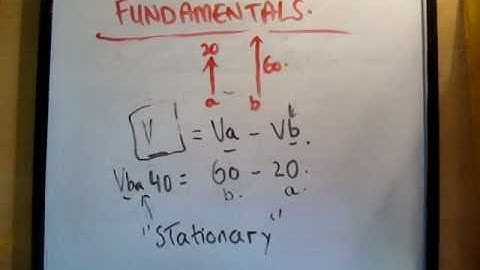 FUNDAMENTALS.
20
60.
a b
V = Va - Vb.
Vba 40 = 60 - 20.
b. a.
"STationary"